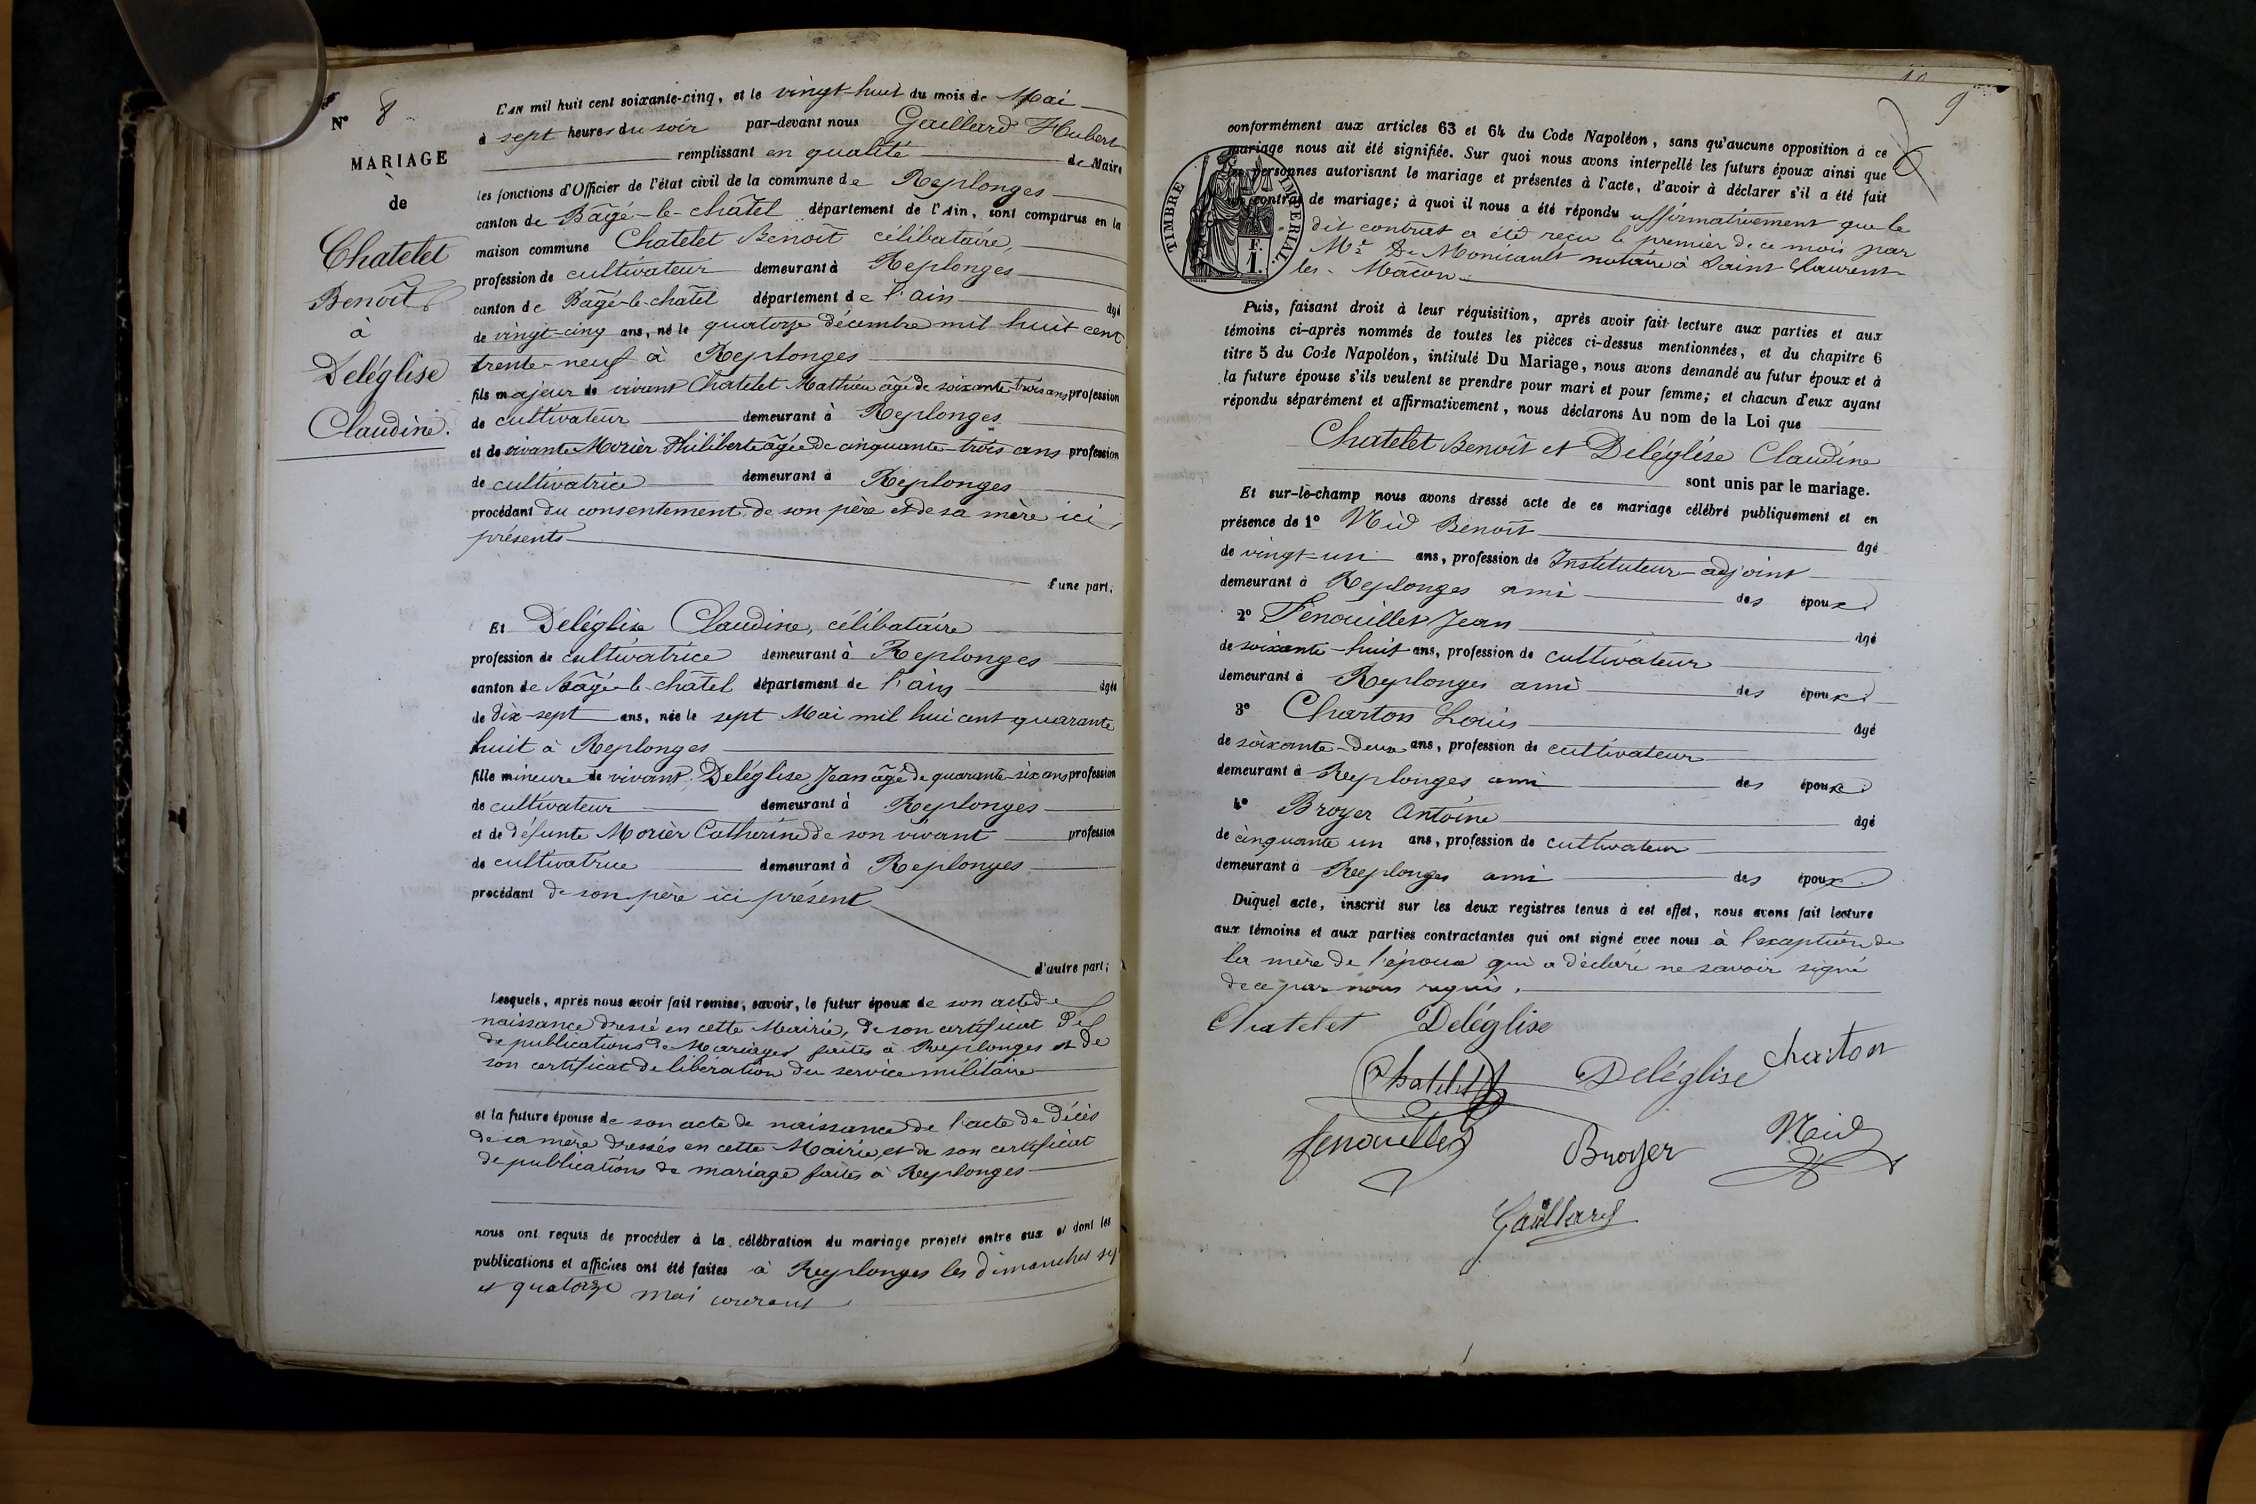 N° 8
MARIAGE
de
Chatelet
Benoît
à
Deléglise
Claudine.
L'AN mil huit cent soixante-cinq, et le vingt-huit du mois de Mai
à sept heures du soir par-devant nous Gaillard Hubert
remplissant en qualité de Maire
les fonctions d'Officier de l'état civil de la commune de Replonges
canton de Bâgé-le-châtel département de l'Ain, sont comparus en la
maison commune Chatelet Benoît célibataire,
profession de cultivateur demeurant à Replonges
canton de Bâgé-le-châtel département de l'ain âgé
de vingt-cinq ans, né le quatorze décembre mil huit cent
trente-neuf à Replonges
fils majeur de vivant Chatelet Mathieu âgé de soixante-trois ans profession
de cultivateur demeurant à Replonges
et de vivante Morièr Philiberte âgée de cinquante-trois ans profession
de cultivatrice demeurant à Replonges
procédant du consentement de son père et de sa mère ici
présents
d'une part;
Et Deléglise Claudine, célibataire
profession de cultivatrice demeurant à Replonges
canton de Bâgé-le-châtel département de l'ain âgée
de dix-sept ans, née le sept Mai mil hui cent quarante
huit à Replonges
fille mineure de vivant Deléglise Jean âgé de quarante-six ans profession
de cultivateur demeurant à Replonges
et de défunte Morièr Catherine de son vivant profession
de cultivatrice demeurant à Replonges
procédant de son père ici présent
d'autre part;
Lesquels, après nous avoir fait remise, savoir, le futur époux de son acte de
naissance dressé en cette Mairie, de son certificat
de publications de Mariages faites à Replonges et de
son certificat de libération du service militaire
et la future épouse de son acte de naissance de l'acte de décès
de sa mère dressés en cette Mairie, et de son certificat
de publications de mariage faites à Replonges
nous ont requis de procéder à la célébration du mariage projeté entre eux et dont les
publications et affiches ont été faites à Replonges les dimanches sept
et quatorze mai courant
10
9
conformément aux articles 63 et 64 du Code Napoléon, sans qu'aucune opposition à ce
mariage nous ait été signifiée. Sur quoi nous avons interpellé les futurs époux ainsi que
les personnes autorisant le mariage et présentes à l'acte, d'avoir à déclarer s'il a été fait
un contrat de mariage; à quoi il nous a été répondu affirmativement que le
dit contrat a été reçu le premier de ce mois par
Me De Monicault notaire à Saint Laurent
les-Mâcon
TIMBRE IMPERIAL.
F.
1.
Puis, faisant droit à leur réquisition, après avoir fait lecture aux parties et aux
témoins ci-après nommés de toutes les pièces ci-dessus mentionnées, et du chapitre 6
titre 5 du Code Napoléon, intitulé Du Mariage, nous avons demandé au futur époux et à
la future épouse s'ils veulent se prendre pour mari et pour femme; et chacun d'eux ayant
répondu séparément et affirmativement, nous déclarons Au nom de la Loi que
Chatelet Benoît et Deléglise Claudine
sont unis par le mariage.
Et sur-le-champ nous avons dressé acte de ce mariage célébré publiquement et en
présence de 1° Nid Benoît âgé
de vingt-un ans, profession de Instituteur-adjoint
demeurant à Replonges ami des époux.
2° Fenouillet Jean âgé
de soixante-huit ans, profession de cultivateur
demeurant à Replonges ami des époux.
3° Charton Louis âgé
de soixante-deux ans, profession de cultivateur
demeurant à Replonges ami des époux.
4° Broyer Antoine âgé
de cinquante un ans, profession de cultivateur
demeurant à Replonges ami des époux.
Duquel acte, inscrit sur les deux registres tenus à cet effet, nous avons fait lecture
aux témoins et aux parties contractantes qui ont signé avec nous à l'exception de
la mère de l'époux qui a déclaré ne savoir signé
de ce par nous requis.
Chatelet Deléglise
Chatelet Deléglise charton
fenouillet Broyer Nid
Gaillard